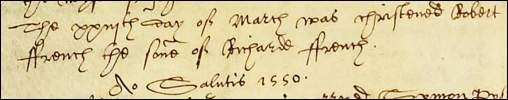 The xxviijth day of March was christened Robert
ffrench the sone of Richard ffrench.
Ao Salutis 1550.